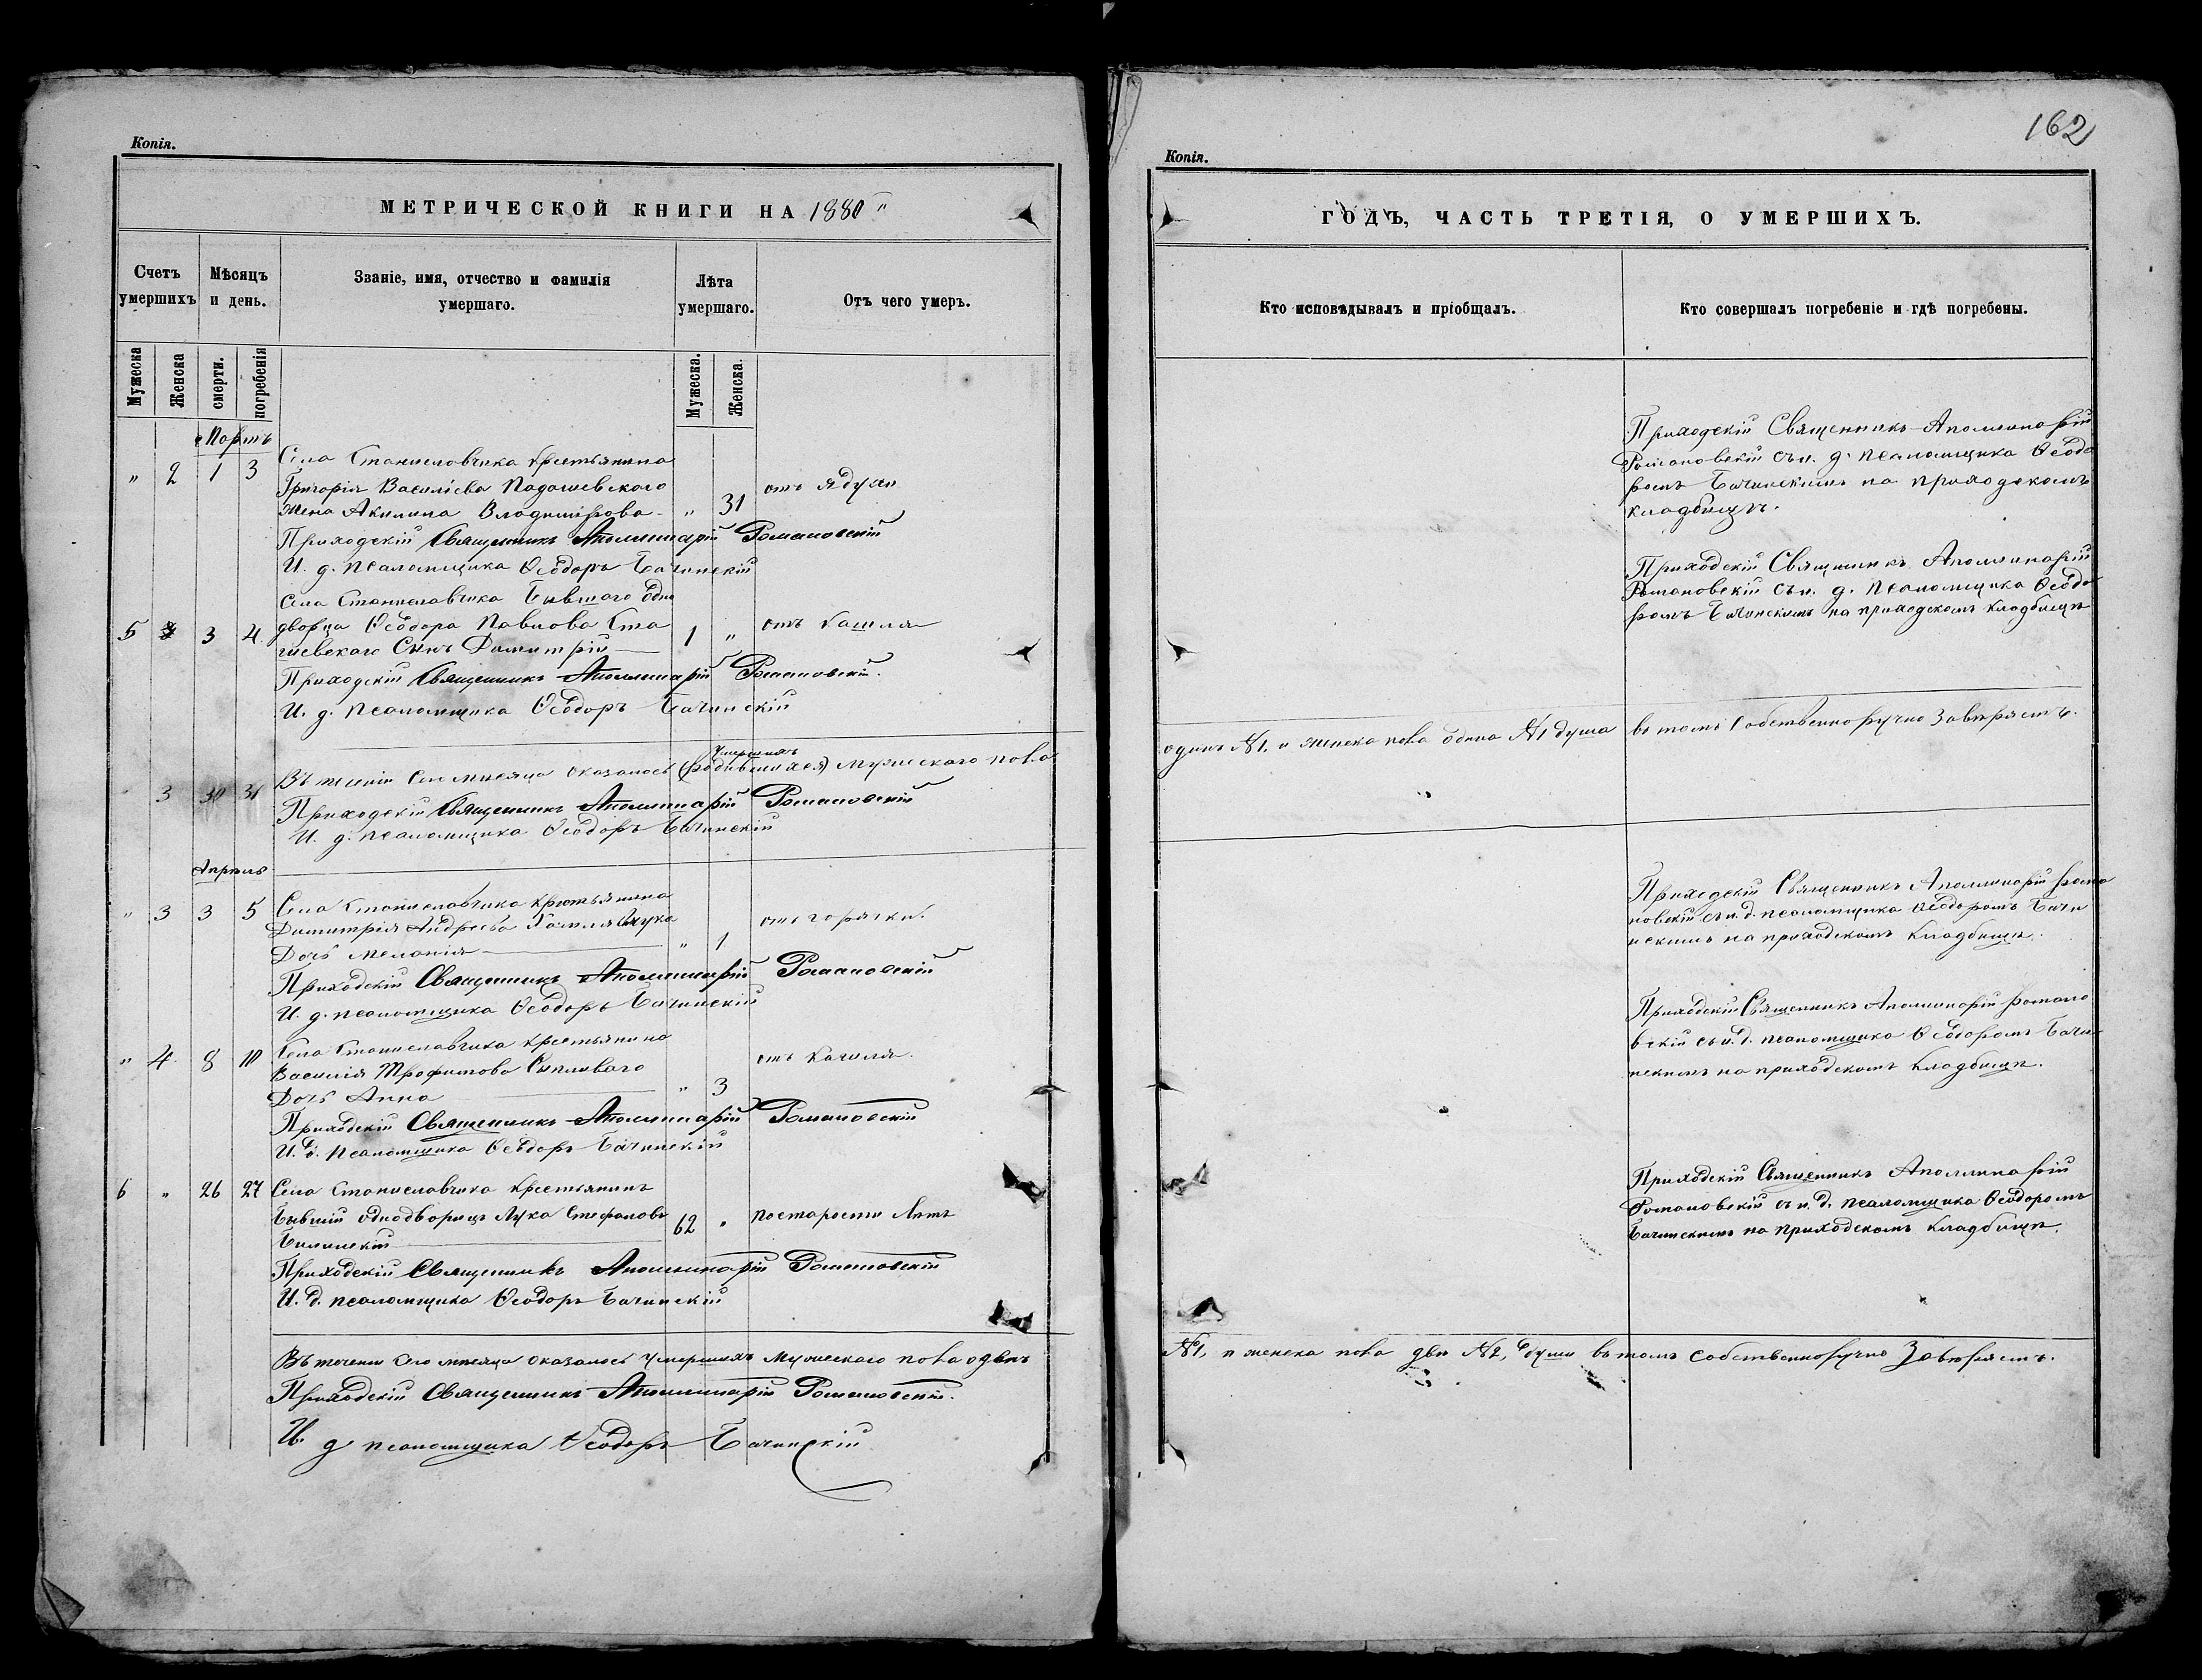 162
Копія.
Копія.
МЕТРИЧЕСКОЙ КНИГИ НА 1880
ГОДЪ, ЧАСТЬ ТРЕТІЯ, О УМЕРШИХЪ.
Счетъ умершихъ
Мѣсяцъ и день.
Званіе, имя, отчество и фамилія умершаго.
Лѣта умершаго.
Отъ чего умеръ.
Кто исповѣдывалъ и пріобщалъ.
Кто совершалъ погребеніе и гдѣ погребены.
Мужеска
Женска
смерти.
погребенія
Мужеска.
Женска.
Мартъ
Села Станиславчика крестьянина
" 2 1 3 Григорія Василіева отъ
Жена Акилина Владимірова " 31
Приходскій Священникъ Аполлинарій Романовскій
И. д. псаломщика Ѳеодоръ Бачинскій
Приходскій Священникъ Аполлинарій
Романовскій съ и. д. псаломщика Ѳеодо
ромъ Бачинскимъ на приходскомъ
кладбищѣ.
Села Станиславчика бывшаго одно
5 3 4 дворца Ѳеодора Павлова Ста 1 " отъ кашля
Сынъ Димитрій
Приходскій Священникъ Аполлинарій Романовскій.
И. д. псаломщика Ѳеодоръ Бачинскій
Приходскій Священникъ Аполлинарій
Романовскій съ и. д. псаломщика Ѳеодо
ромъ Бачинскимъ на приходскомъ кладбищѣ
умершихъ
Въ теченіи сего мѣсяца оказалось (родившихся) мужескаго пола
одинъ №1, и женска пола одна №1 душа въ томъ собственноручно завѣряемъ.
3 30 31
Приходскій Священникъ Аполлинарій Романовскій
И. д. псаломщика Ѳеодоръ Бачинскій
Апрѣль
" 3 3 5 Села Станиславчика крестьянина
Димитрія Андреева отъ горячки.
Дочь Меланія " 1
Приходскій Священникъ Аполлинарій Романовскій
И. д. псаломщика Ѳеодоръ Бачинскій
Приходскій Священникъ Аполлинарій Рома
новскій съ и. д. псаломщика Ѳеодоромъ Бачи
нскимъ на приходскомъ кладбищѣ.
" 4 8 10 Села Станиславчика крестьянина
Василія Трофимова отъ кашля.
Дочь Анна " 3
Приходскій Священникъ Аполлинарій Романовскій
И. д. псаломщика Ѳеодоръ Бачинскій
Приходскій Священникъ Аполлинарій Романо
вскій съ и. д. псаломщика Ѳеодоромъ Бачи
нскимъ на приходскомъ кладбищѣ.
6 " 26 27 Села Станиславчика крестьянинъ
бывшій однодворецъ Лука Стефановъ 62 " по старости лѣтъ
Билинскій
Приходскій Священникъ Аполлинарій Романовскій
И. д. псаломщика Ѳеодоръ Бачинскій
Приходскій Священникъ Аполлинарій
Романовскій съ и. д. псаломщика Ѳеодоромъ
Бачинскимъ на приходскомъ кладбищѣ.
Въ теченіи сего мѣсяца оказалось умершихъ мужескаго пола одинъ
№1, и женска пола двѣ №2, души въ томъ собственноручно завѣряемъ.
Приходскій Священникъ Аполлинарій Романовскій.
И. д псаломщика Ѳеодоръ Бачинскій